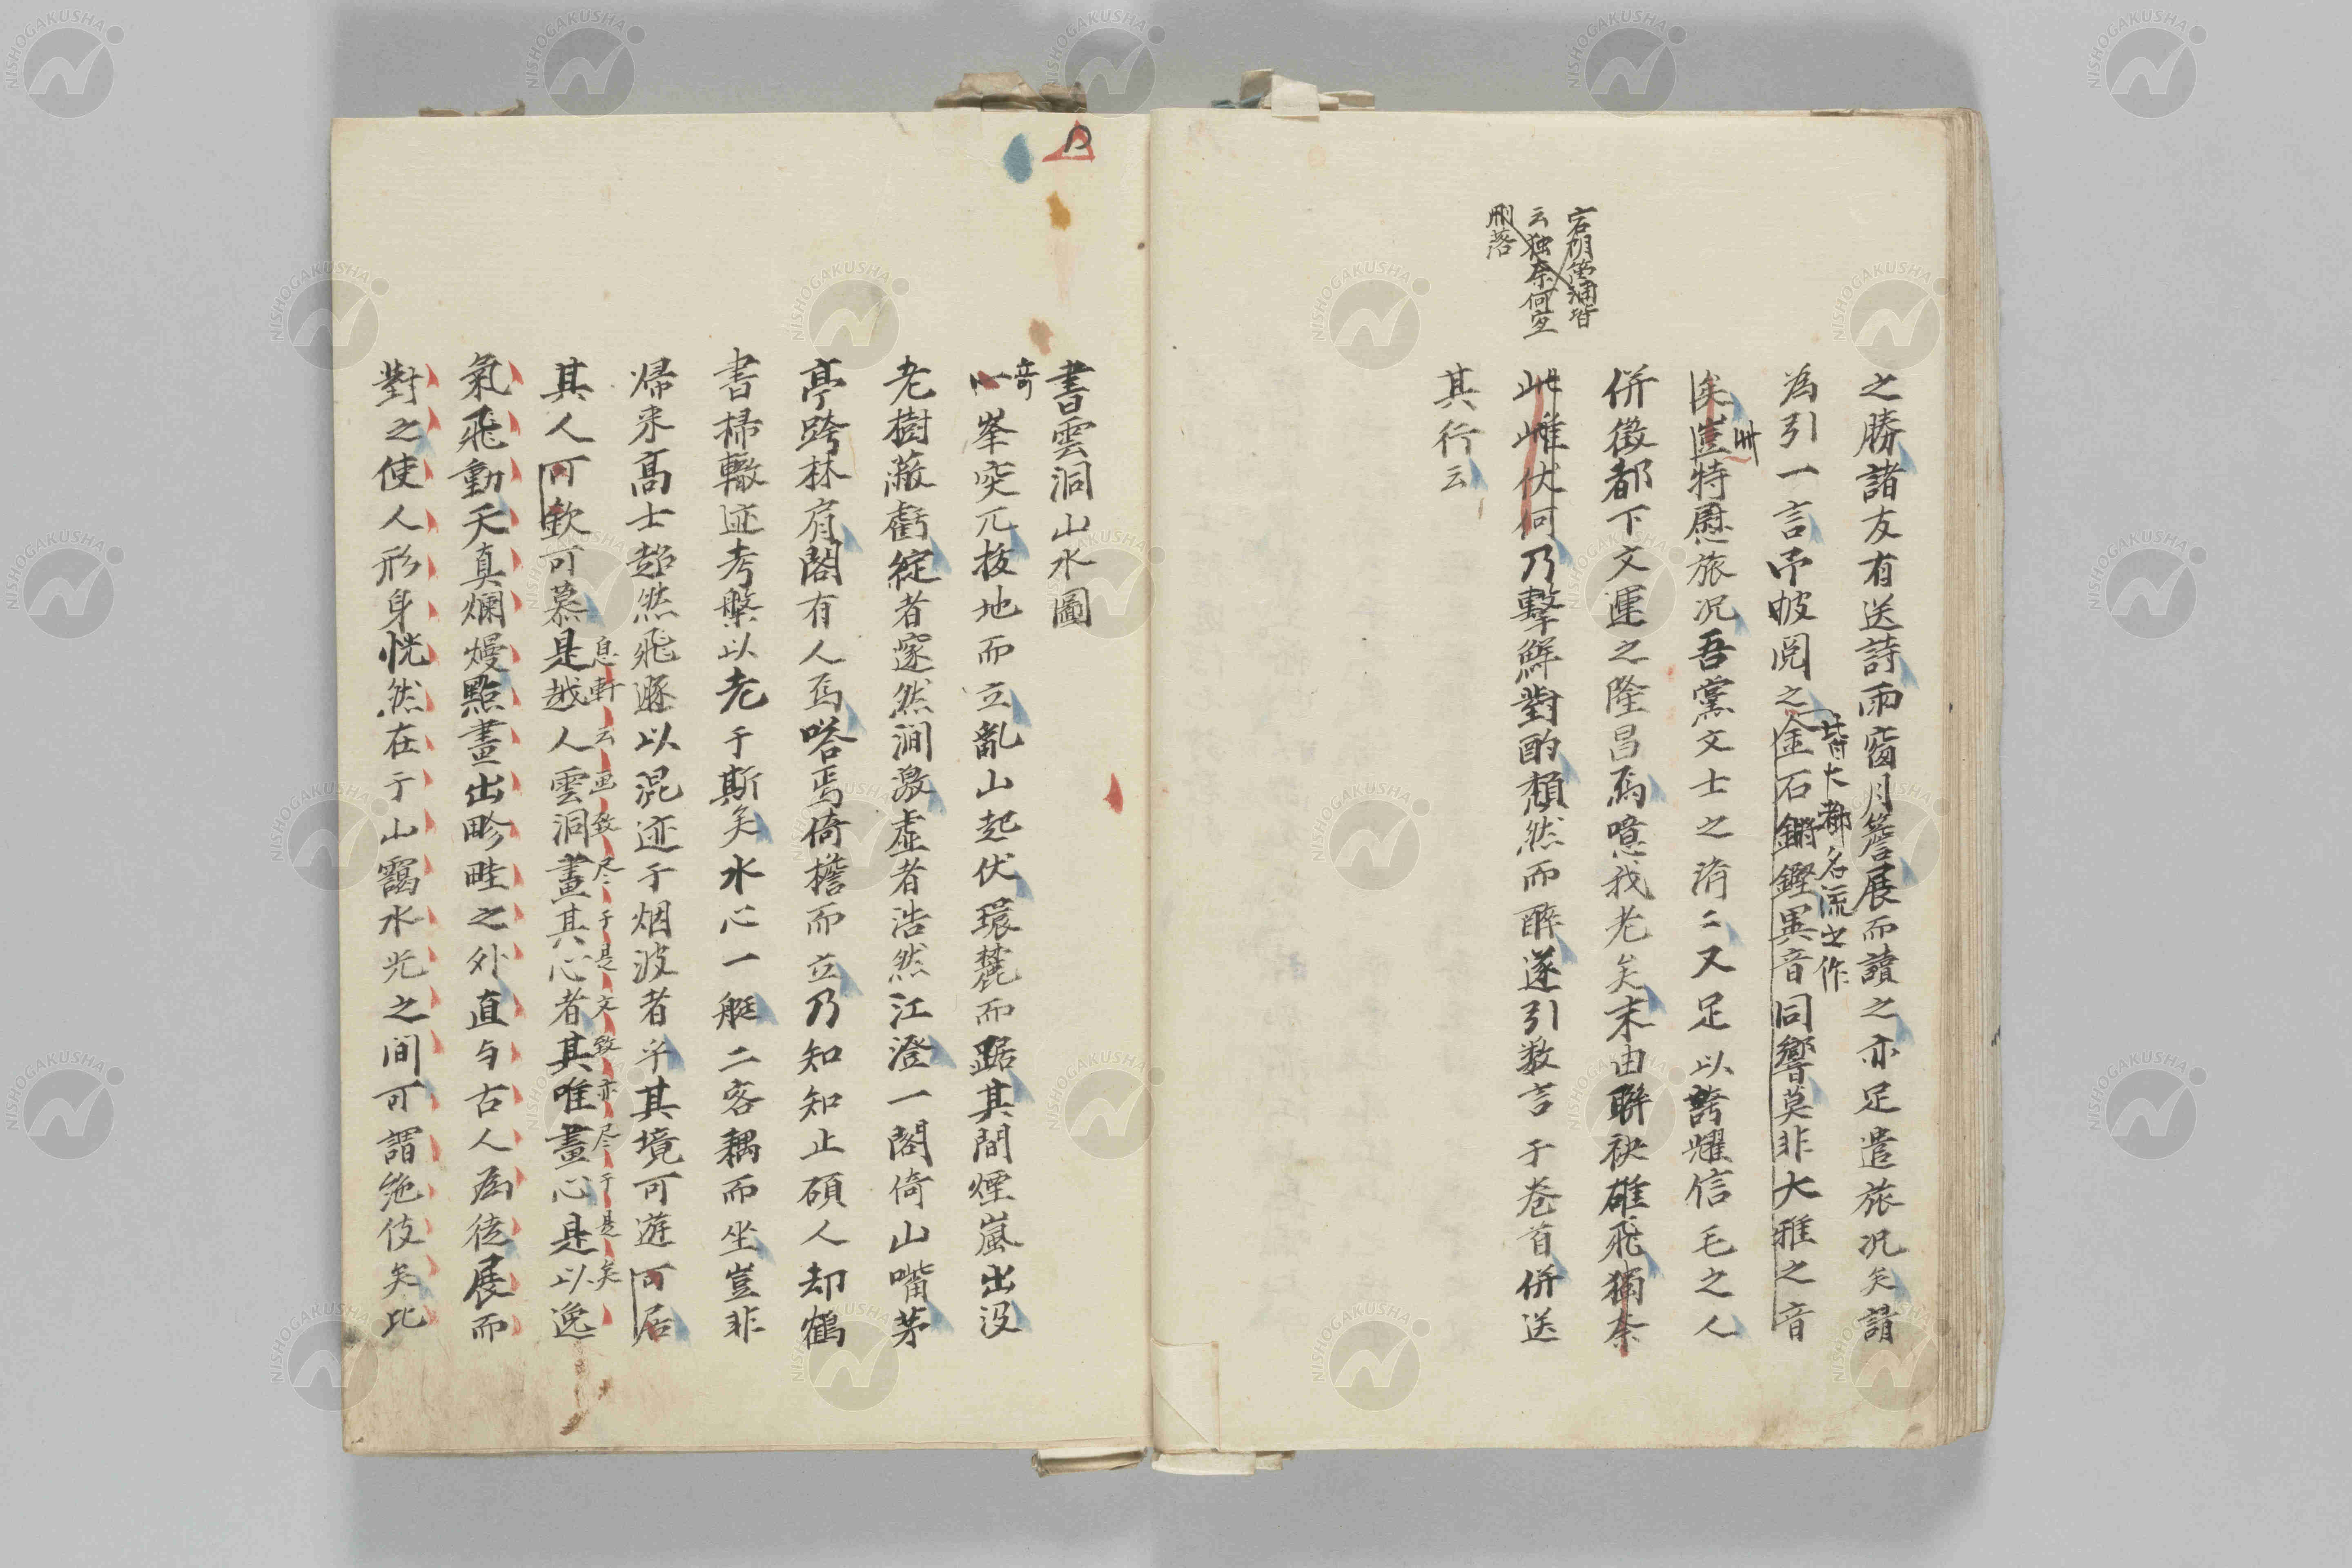 之勝諸友有送詩雨窗月簷展而讀之亦足遣旅况矣請
為引一言予披閲之金石鏘鏗異音同響莫非大雅之音
皆大都名流之作
矣豈特慰旅况吾黨文士之済〻又足以誇耀信毛之人
併徵都下文運之隆昌焉噫我老矣末由聯袂雄飛獨奈
此雌伏何乃擊鮮對酌頽然而酔遂引数言于巻首併送
其行云
云独奈何宜
刪落
書雲洞山水圖
奇
峯突兀拔地而立亂山起伏環麓而踞其間煙嵐出没
老樹蔽虧綻者窣然澗激虚者浩然江澄一閣倚山嘴茅
亭跨林肩閣有人焉嗒焉倚檐而立乃知知止碩人却鶴
書掃轍迹考槃以老于斯矣水心一艇二客耦而坐豈非
帰来高士超然飛遯以混迹于烟波者乎其境可遊可居
其人可欽可慕是越人雲洞畫其心者其唯畫心是以逸
息軒云画致尽于是文致亦尽于是矣
氣飛動天真爛熳點畫出畛畦之外直与古人為徒展而
對之使人形身恍然在于山靄水光之间可謂絶伎矣比
NISHOGAKUSHA